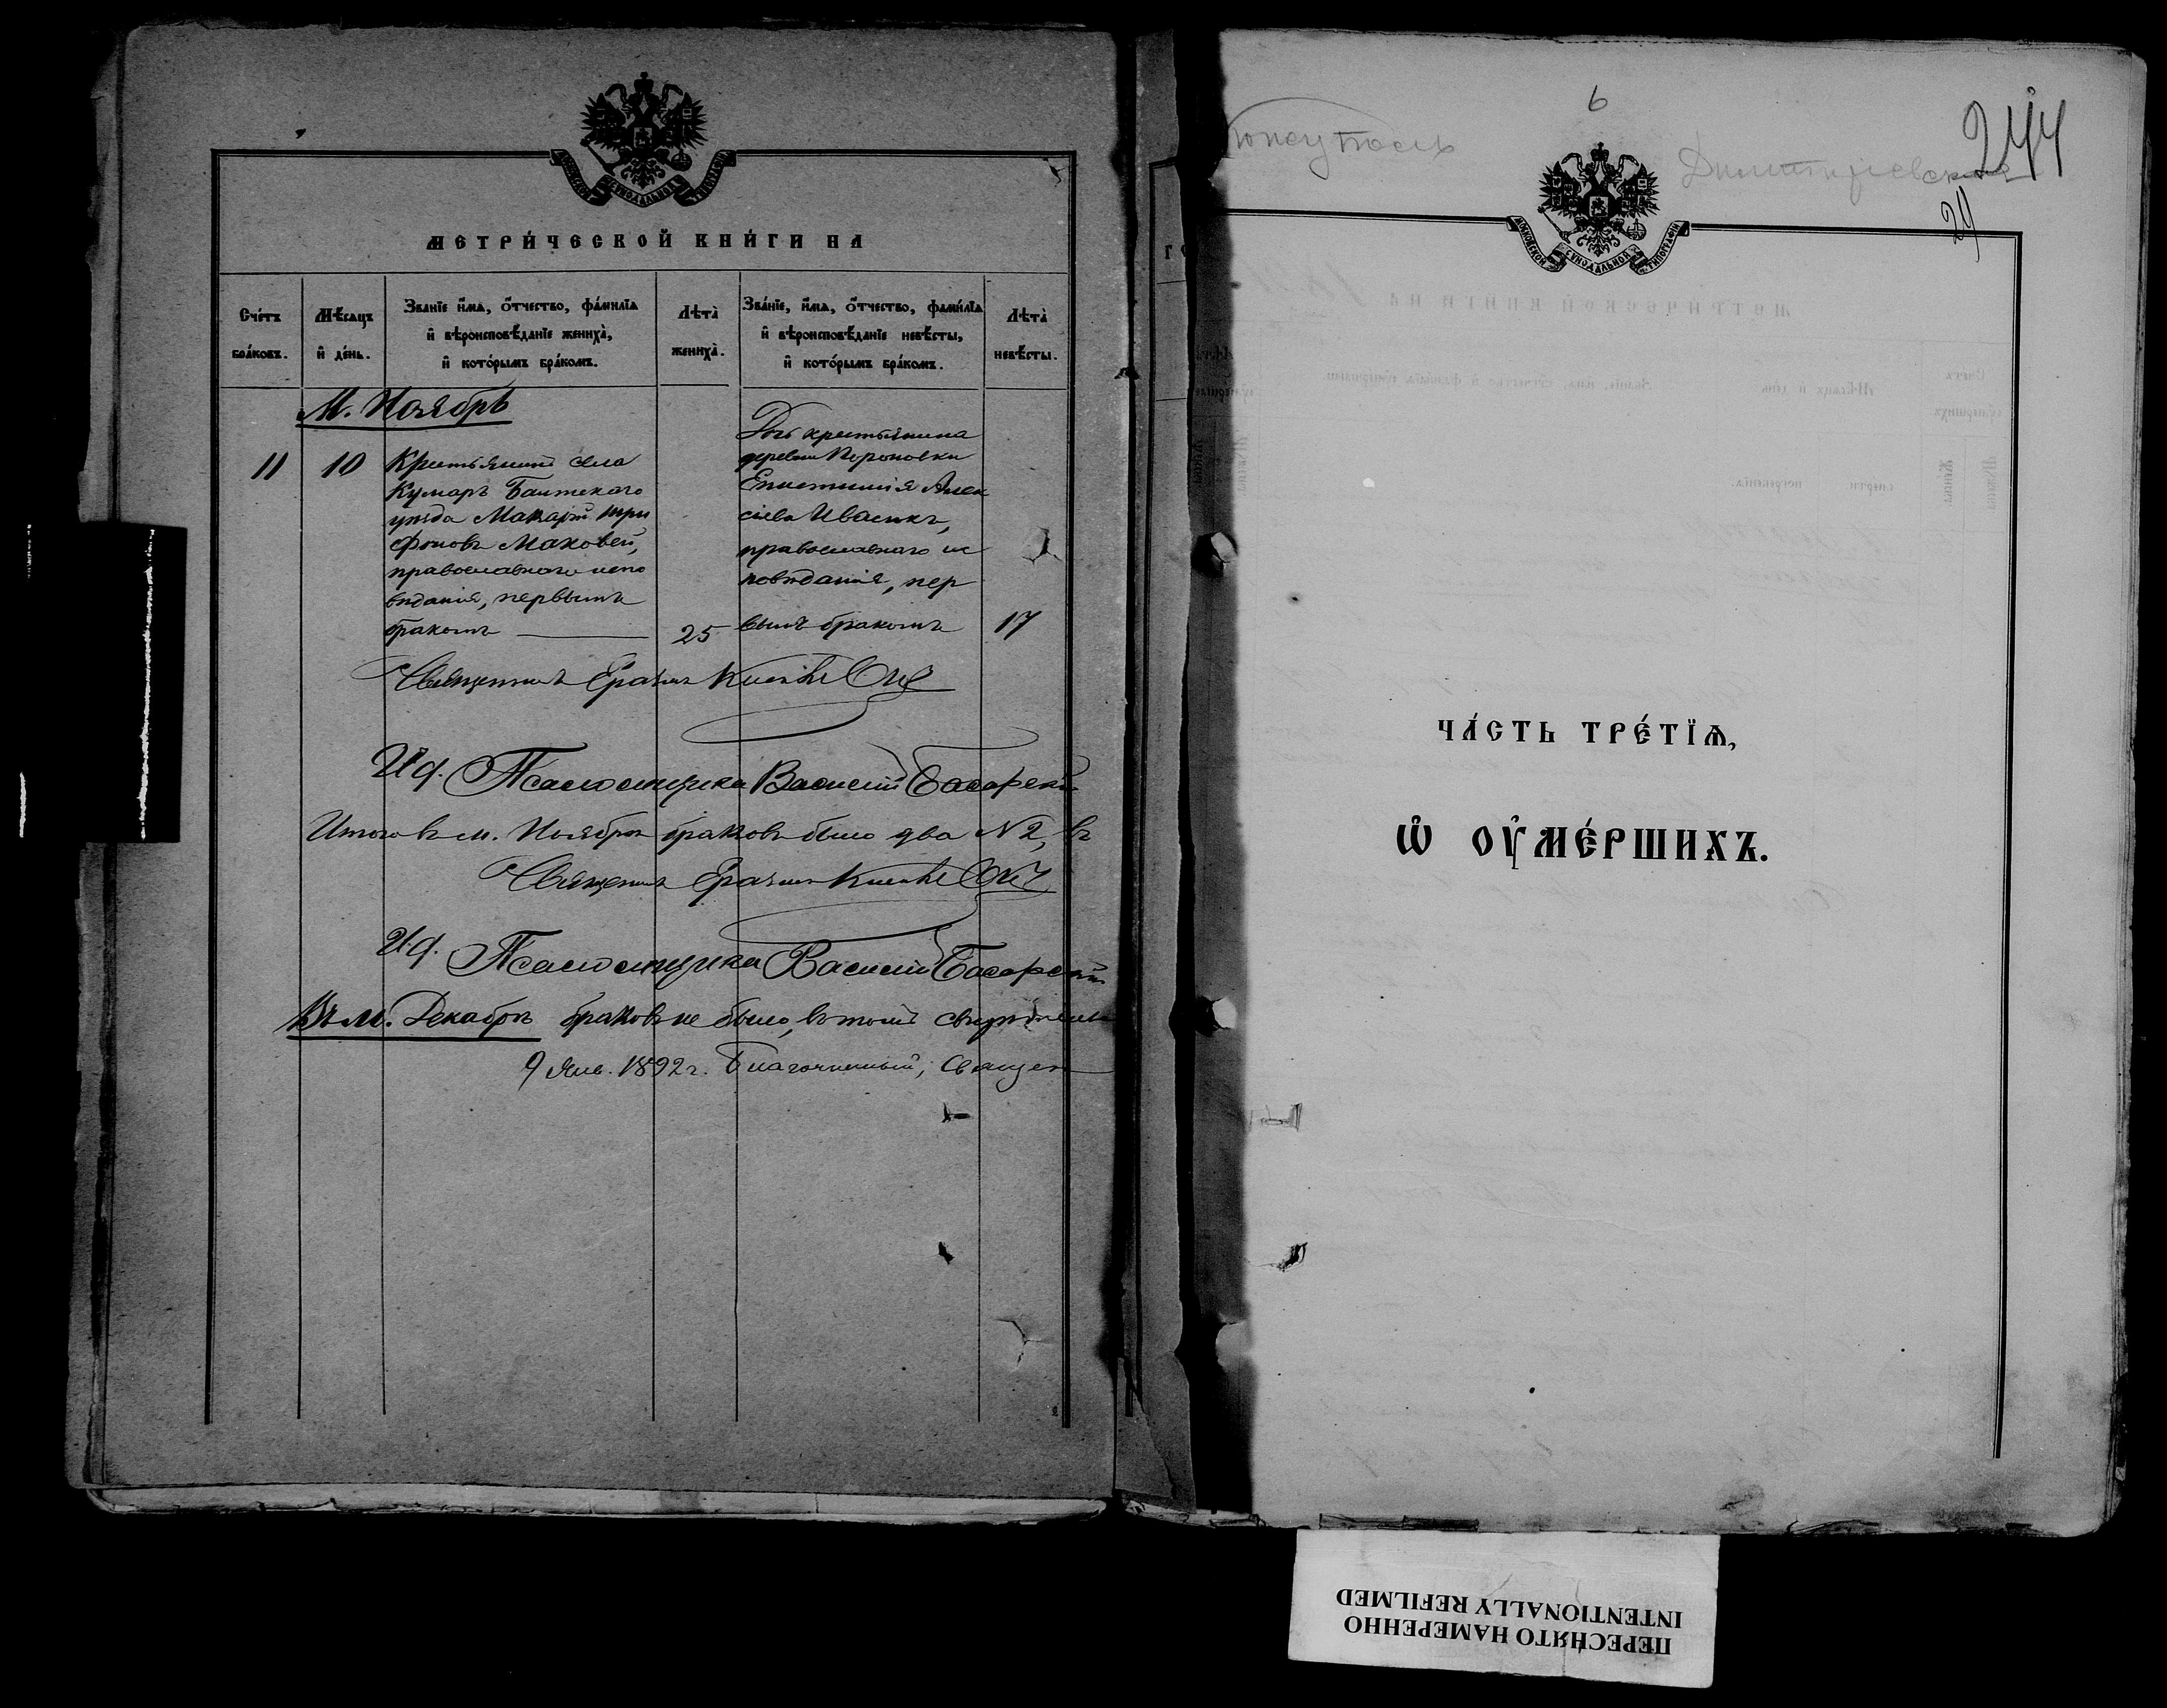 МЕТРИ́ЧЕСКОЙ КНИ́ГИ НА
Сче́тъ бра́ковъ.
Мѣ́сяцъ и҆ де́нь.
Зва́нїе и҆́мѧ, ѻ҆́тчество, фами́лїѧ и҆ вѣроисповѣ́данїе жениха̀, и҆ кото́рымъ бра́комъ.
Лѣта̀ жениха̀.
Зва́нїе, и҆́мѧ, ѻ҆́тчество, фами́лїѧ и҆ вѣроисповѣ́данїе невѣ́сты, и҆ кото́рымъ бра́комъ.
Лѣта̀ невѣ́сты.
М. Ноябрь
11
10
Крестьянинъ села
Кумаръ Балтскаго
уѣзда Макарій Три
фоновъ Маковей,
православнаго испо
вѣданія, первымъ
бракомъ
25
Дочь крестьянина
деревни
Епистимія Алек
сіева Ивасикъ,
православнаго ис
повѣданія, пер
вымъ бракомъ
17
Священникъ
И д. Псаломщика Василій
Итого въ м. Ноябрѣ браковъ было два № 2, въ
Священникъ
И. д. Псаломщика Василій
Въ м. Декабрѣ браковъ не было, въ томъ
9 Янв. 1892 г. Благочинный, Священ
6
244
24
МОСКОВСКОЙ СѴНОДАЛЬНОЙ ТИПОГРАФІИ
ЧА́СТЬ ТРЕ́ТЇѦ,
Ѡ҆ ОУ҆МЕ́РШИХЪ.
ПЕРЕСНЯТО НАМЕРЕННО
INTENTIONALLY REFILMED